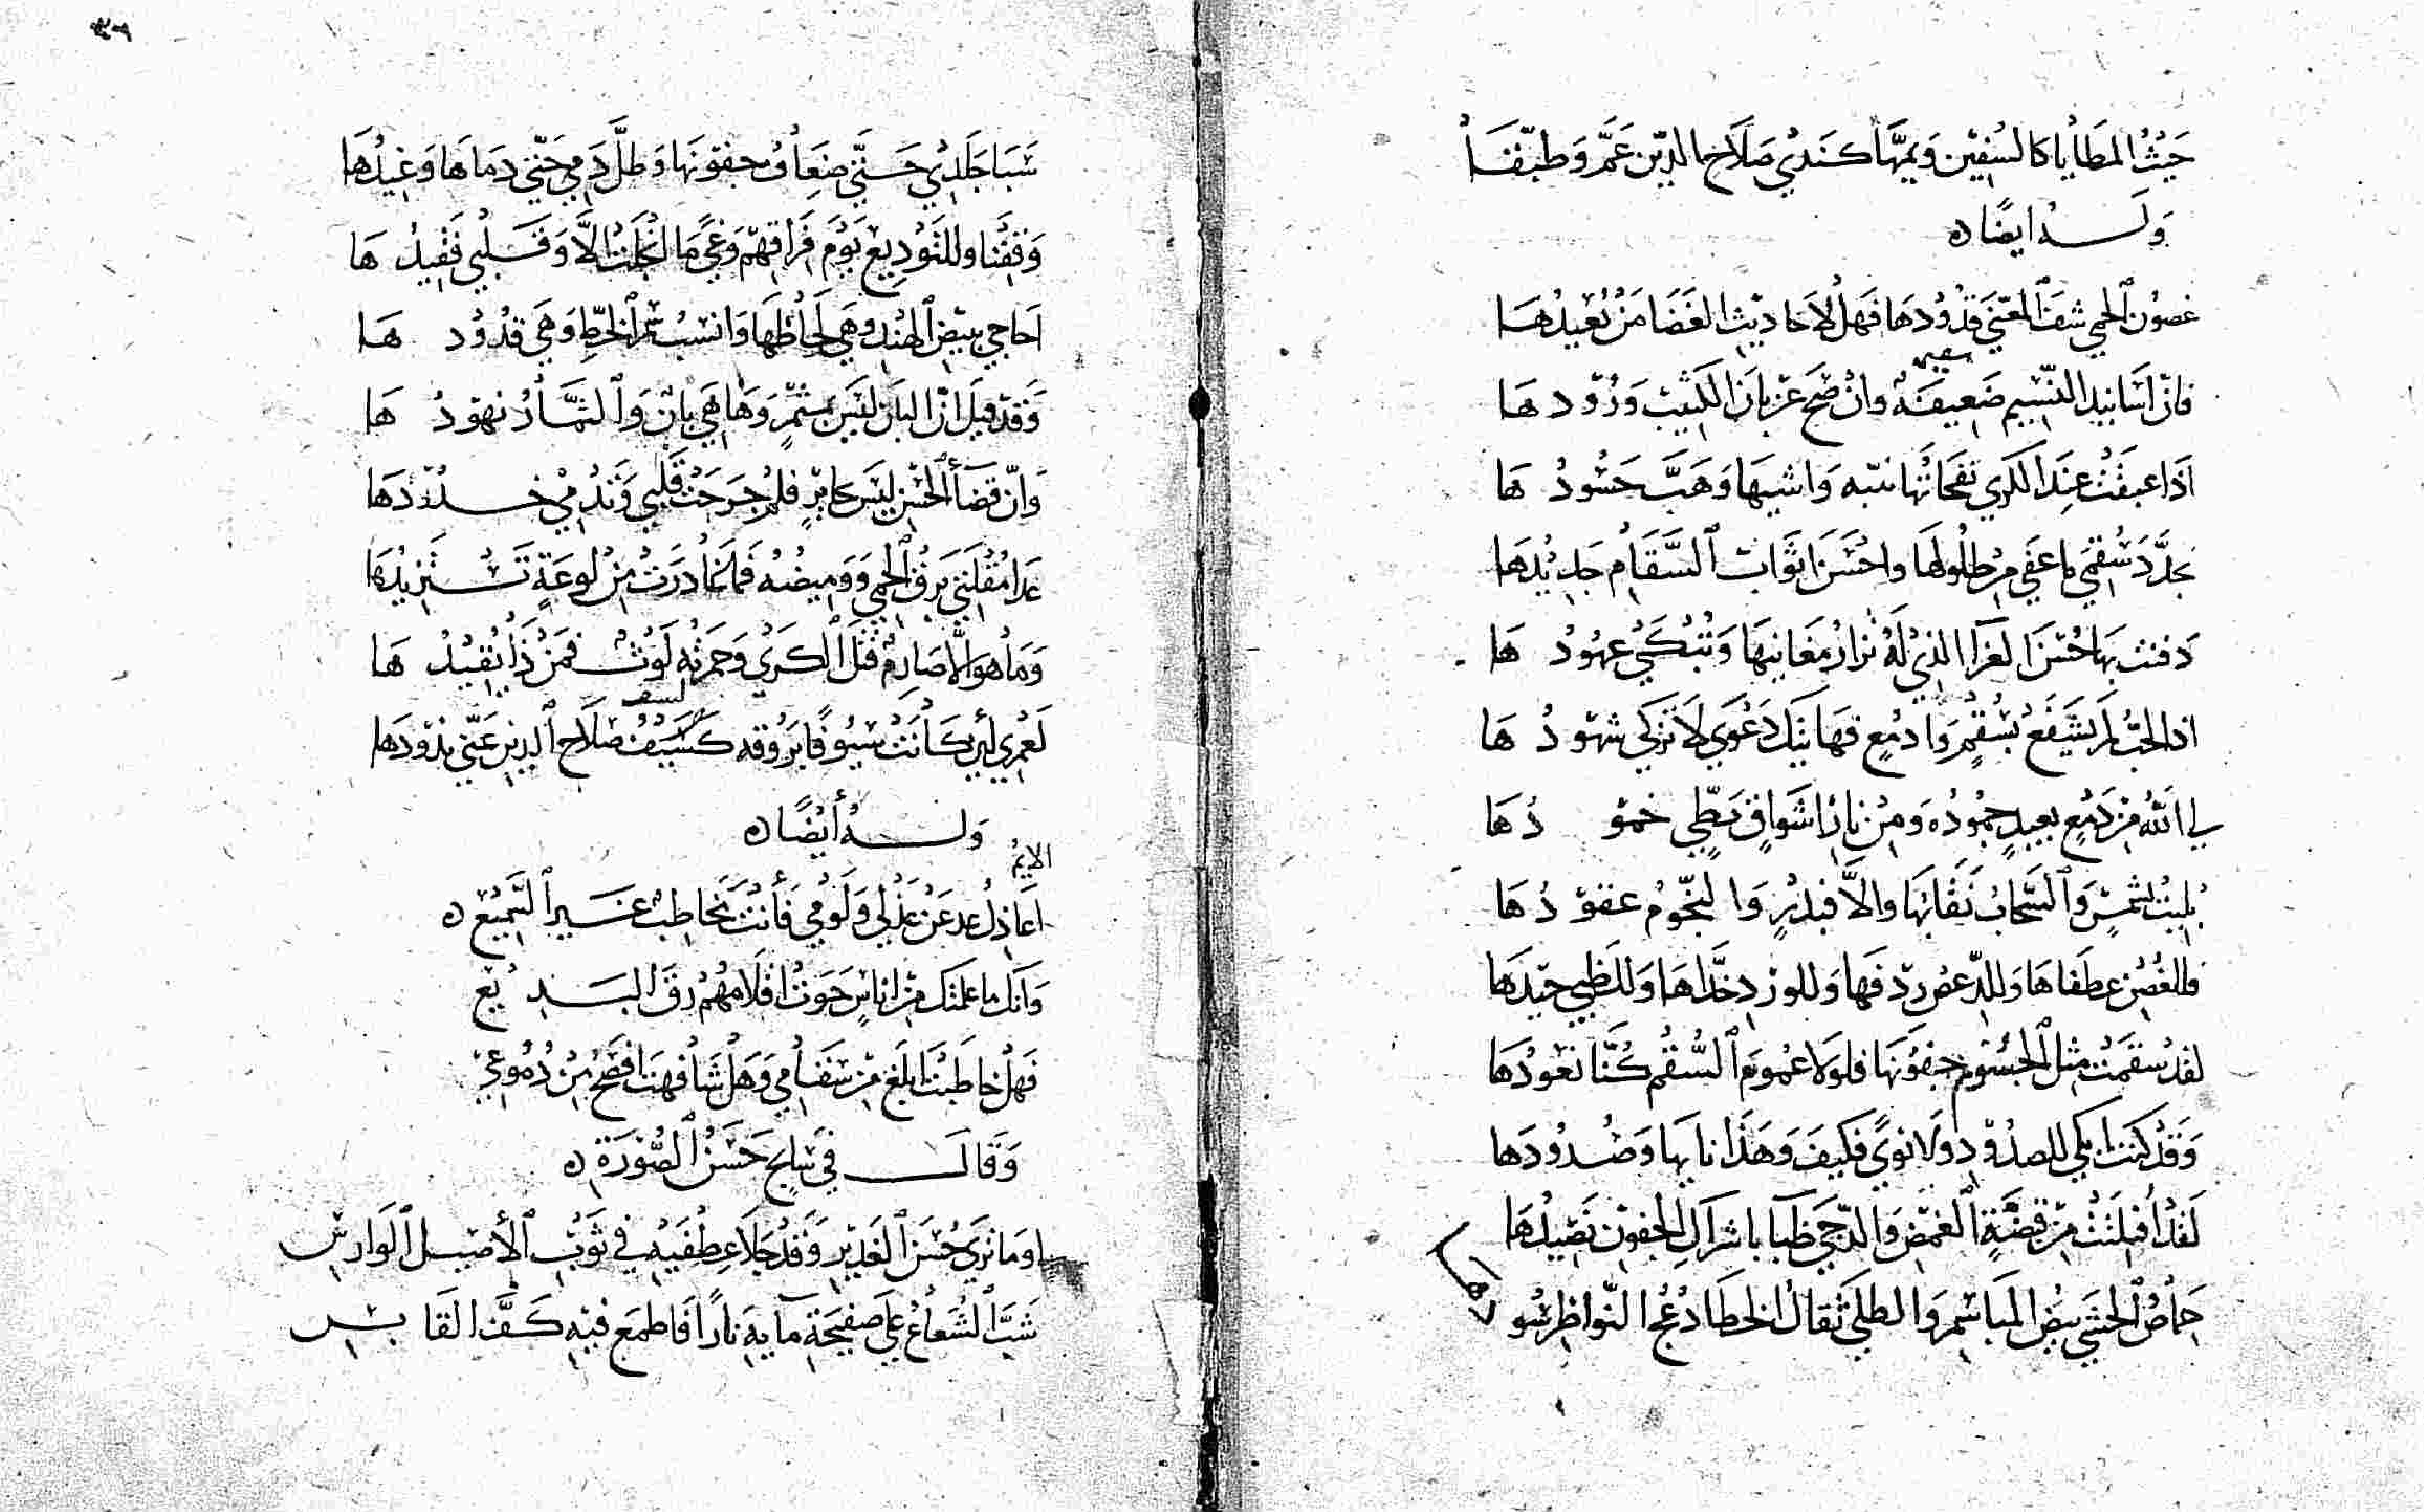 حيث المطايا كالسفين ويمّها كندى صلاح الدين عمّ وطبّقا
وله ايضا ه
غصون الحمى شفّ المعنّى قدودها فهل لاحاديث الغضا من يعيدها
فانّ اسانيد النّسيم ضعيفة وان صحّ عن بان الكثيب ورودها
اذا عبقت عند الكرى نفحاتها تنبّه واشيها وهبّ حسودها
يجدّد سقمي ما عفى من طلولها واحسن اثواب السّقام جديدها
دفنت بها حسن العزا الذي له تزار مغانيها وتبكي عهودها
اذا الحبّ لم يشفع بسقم وادمع فهاتيك دعوى لا تزكى شهودها
لي الله من دمع بعيد جموده ومن نار اشواق بطي خمودها
بليت بشمس والسّحاب نقابها والّا فبدر والنّجوم عقودها
فللغصن عطفاها وللدّعص ردفها وللورد خدّاها وللظبي جيدها
لقد سقمت مثل الجسوم جفونها فلولا عموم السّقم كنّا نعودها
وقد كنت ابكي للصدود ولا نوى فكيف وهذا نايها وصدودها
لقد أفلتت من قبضة الغمض والدّجى ظبا باشراك الجفون نصيدها
خماص الحشى بيض المباسم والطلى ثقال الخطا دعج النّواظر سودها
٣٦
سبا جلدي حتّى ضعاف جفونها وطلّ دمي حتّى دماها وغيدها
وقفنا وللتّوديع يوم فراقهم وغى ما انجلت الّا وقلبي فقيدها
احاجي ببيض الهند وهي لحاظها وانسب سمر الخطّ وهي قدودها
وقد قيل انّ البان ليس بمثمر وها هي بان والثّمار نهودها
وانّ قضاء الحسن ليس بجاير فلم جرحت قلبي وتدمى خدودها
عدا مقلتي برق الحمى ووميضه فما غادرت من لوعة تستزيدها
وما هو الّا صارم قتل الكرى وحمرته لوث فمن ذا يقيدها
لعمري لئن كانت سيوفا بروقه كسيف صلاح الدين عنّي يذودها
وله أيضا ه
الايم
اعاذل عد عن عذلي ولومي فأنت تخاطب غير السّميع ه
وانك ما علمتك من اناس حوت اقلامهم رقّ البديع
فهل خاطبت ابلغ من سقامي وهل شافهت افصح من دموعي
وقال في سابح حسن الصّورة ه
اوما ترى حسن الغدير وقد جلا عطفيه في ثوب الأصيل الوارس
شبّ الشّعاع على صفيحة مآيه نارا فاطمع فيه كفّ القابس